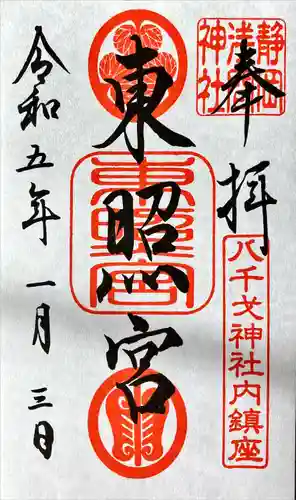 奉拝
静岡
清水
神社
八千戈神社内鎮座
東照宮
東照宮
令和五年一月三日